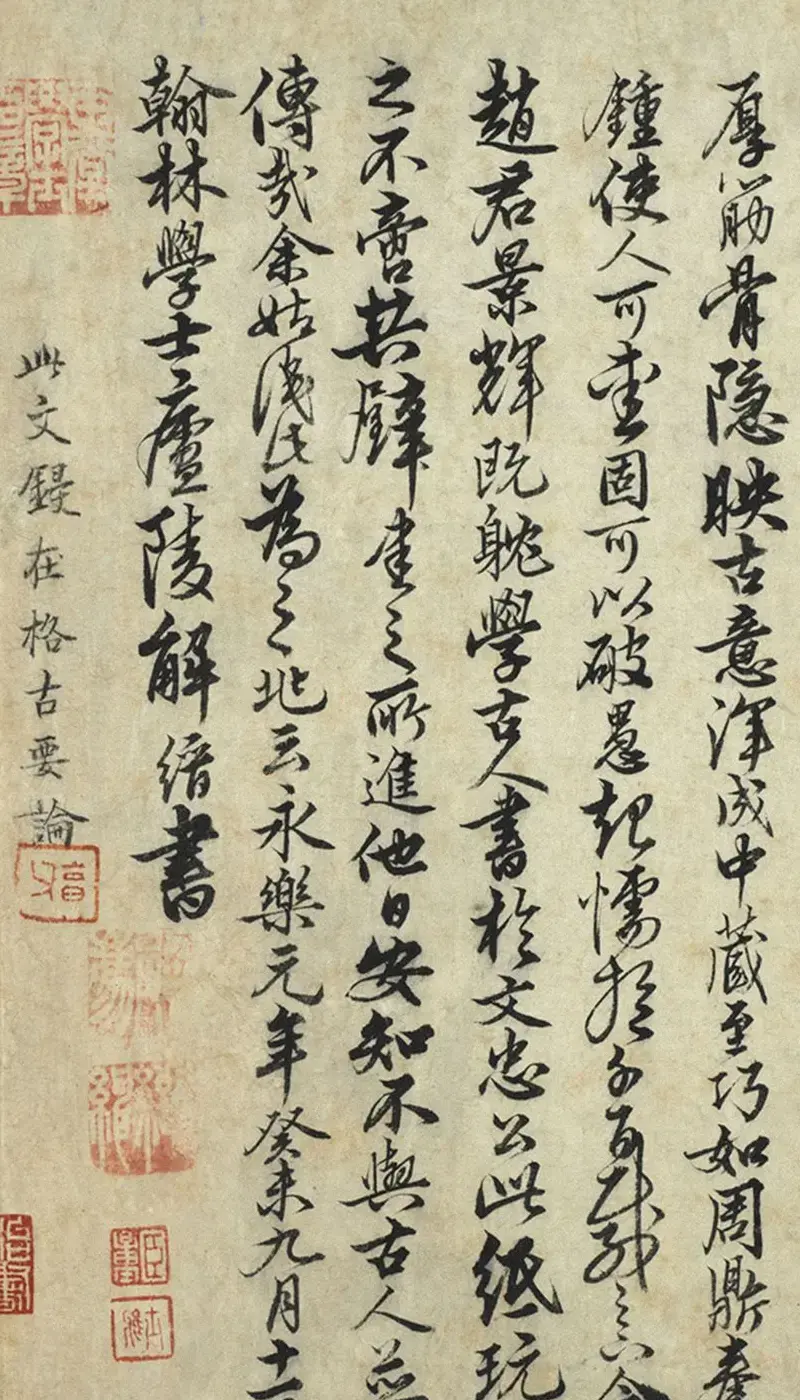 厚筋骨隐映古意渾成中藏至巧如周鼎
鍾使人可愛固可以破愚起懦於千百載之下今
趙君景輝既躭學古人書於文忠公此紙玩
之不啻拱璧書之所進他日安知不與古人並
傳哉余姑淺淺為之兆云永樂元年癸未九月十
翰林學士廬陵解縉書
此文鋟在格古要論